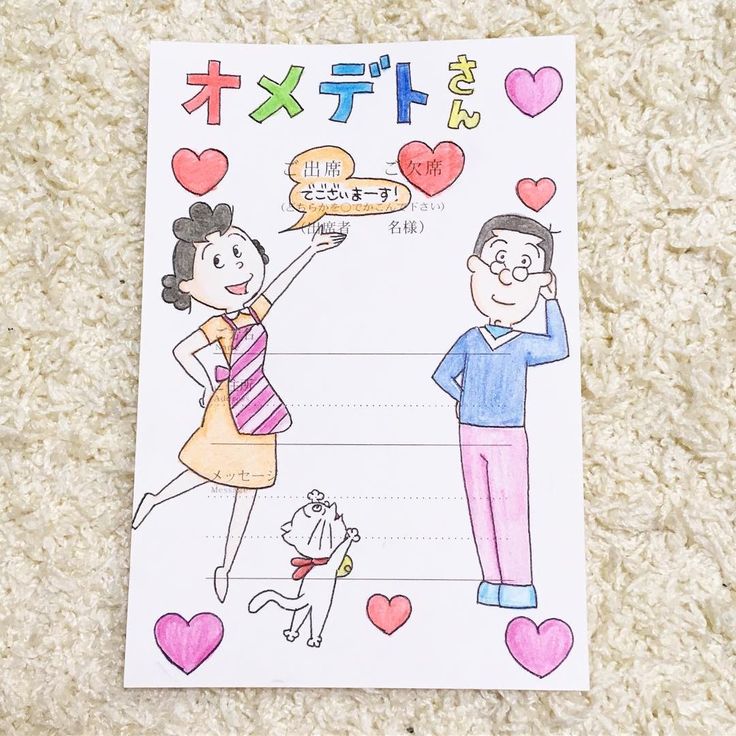 オメデトさん
ご出席 ご欠席
でございまーす!
(どちらかを○でかこんで下さい)
(出席者 名様)
ご住所
Address
メッセージ
Message